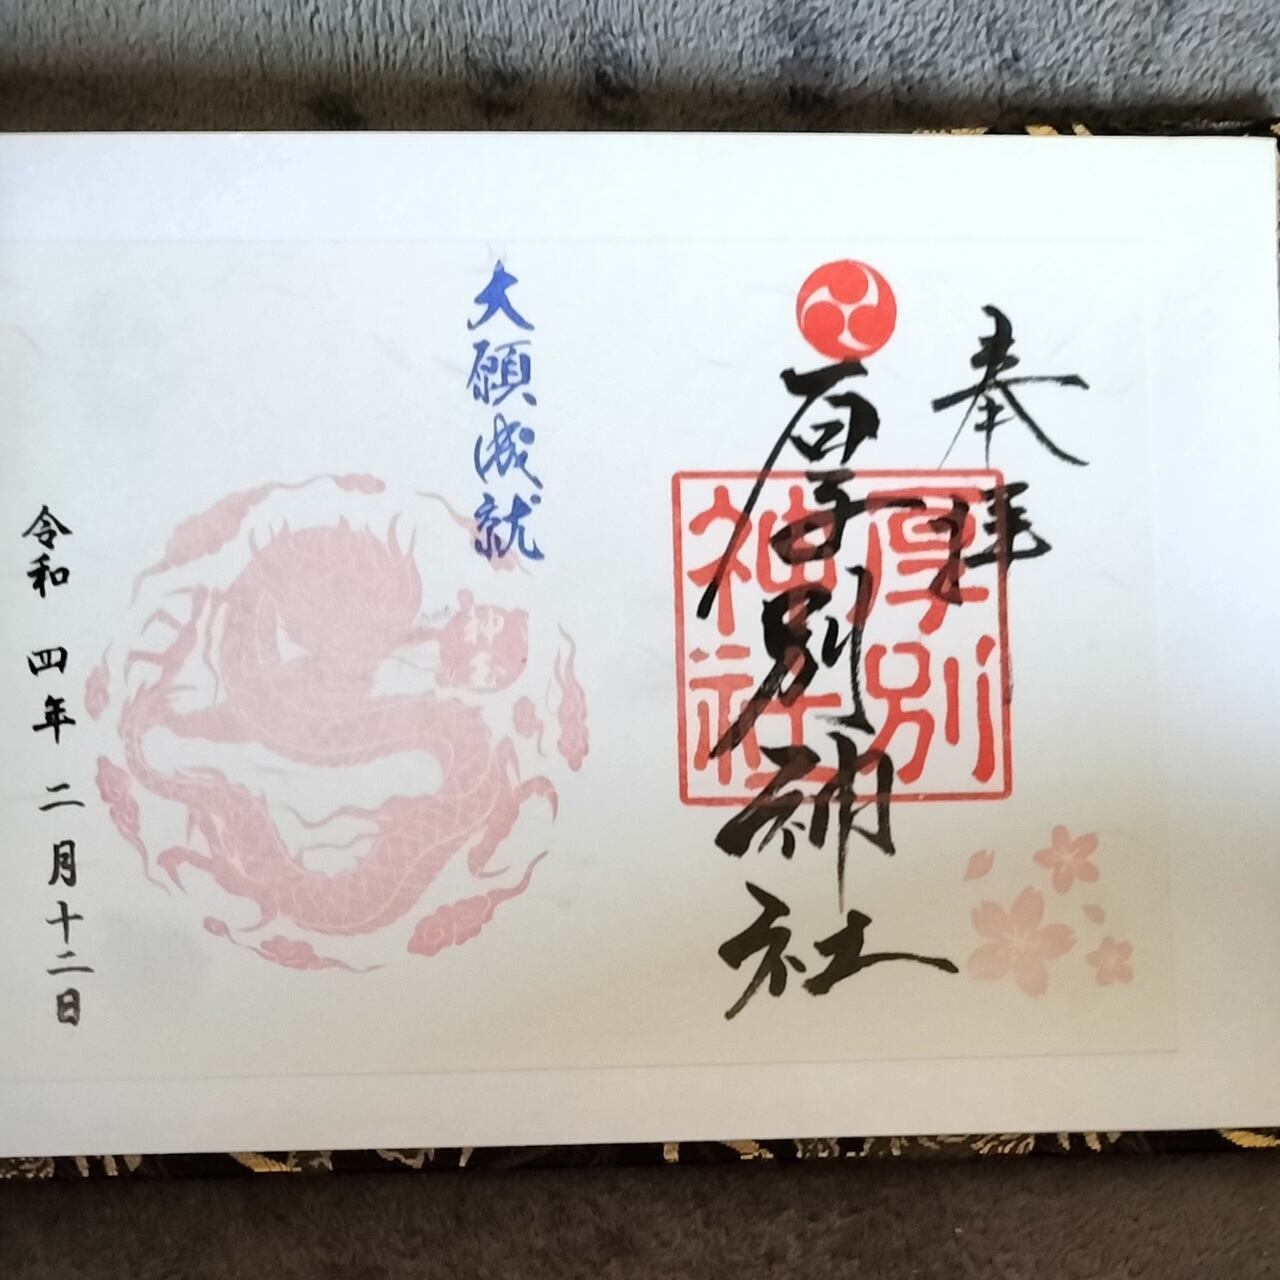 奉拝
厚別神社
厚別
神社
大願成就
神玉
令和 四年 二月十二日